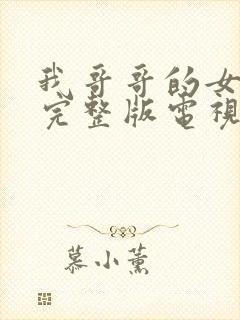 我哥哥的女
完整版電視
慕小薰